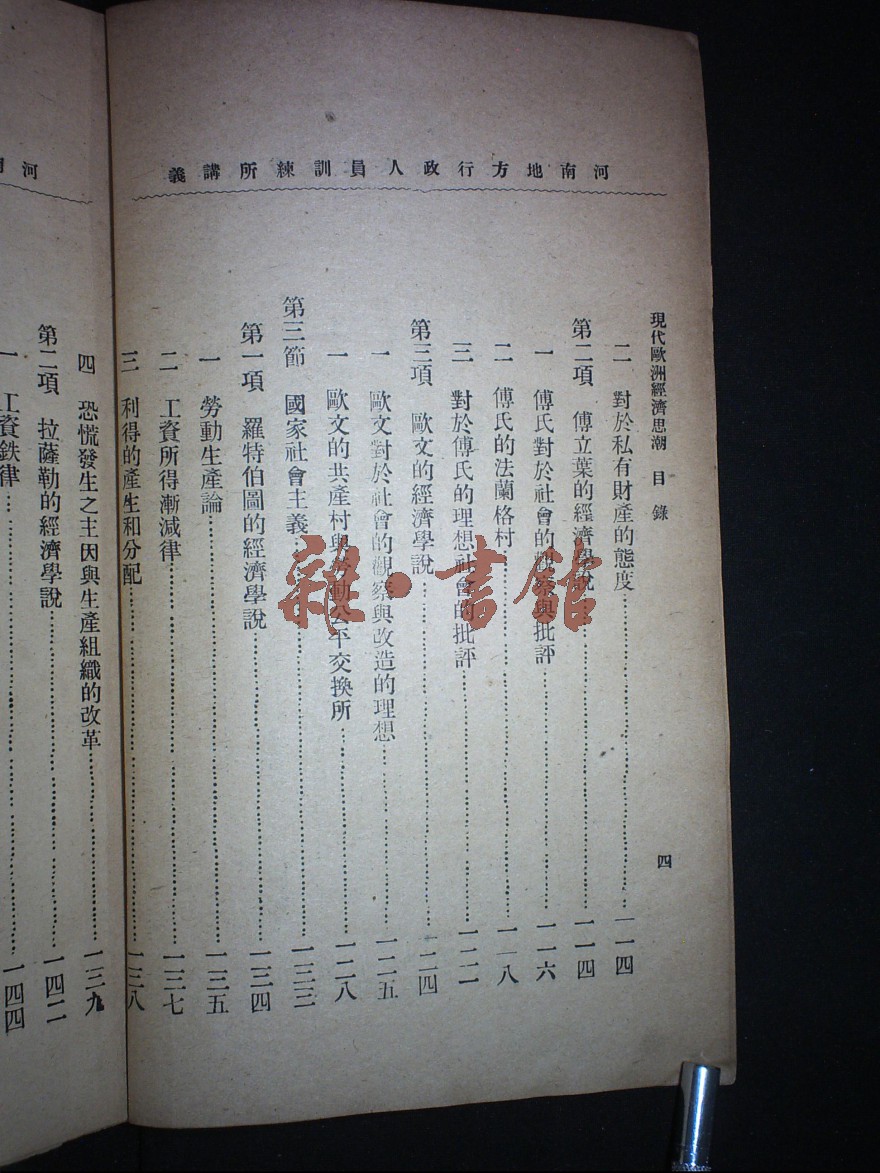 河南地方行政人員訓練所講義
現代歐洲經濟思潮 目錄 四
二 對於私有財產的態度 一一四
第二項 傅立葉的經濟學說 一一四
一 傅氏對於社會的觀察與批評 一一六
二 傅氏的法蘭格村 一一八
三 對於傅氏的理想社會的批評 一二二
第三項 歐文的經濟學說 一二四
一 歐文對於社會的觀察與改造的理想 一二五
一 歐文的共產村與勞動公平交換所 一二八
第三節 國家社會主義 一三三
第一項 羅特伯圖的經濟學說 一三四
一 勞動生產論 一三五
二 工資所得漸減律 一三七
三 利得的產生和分配 一三八
四 恐慌發生之主因與生產組織的改革 一三九
第二項 拉薩勒的經濟學說 一四二
一 工資鉄律 一四四
河
雜·書館